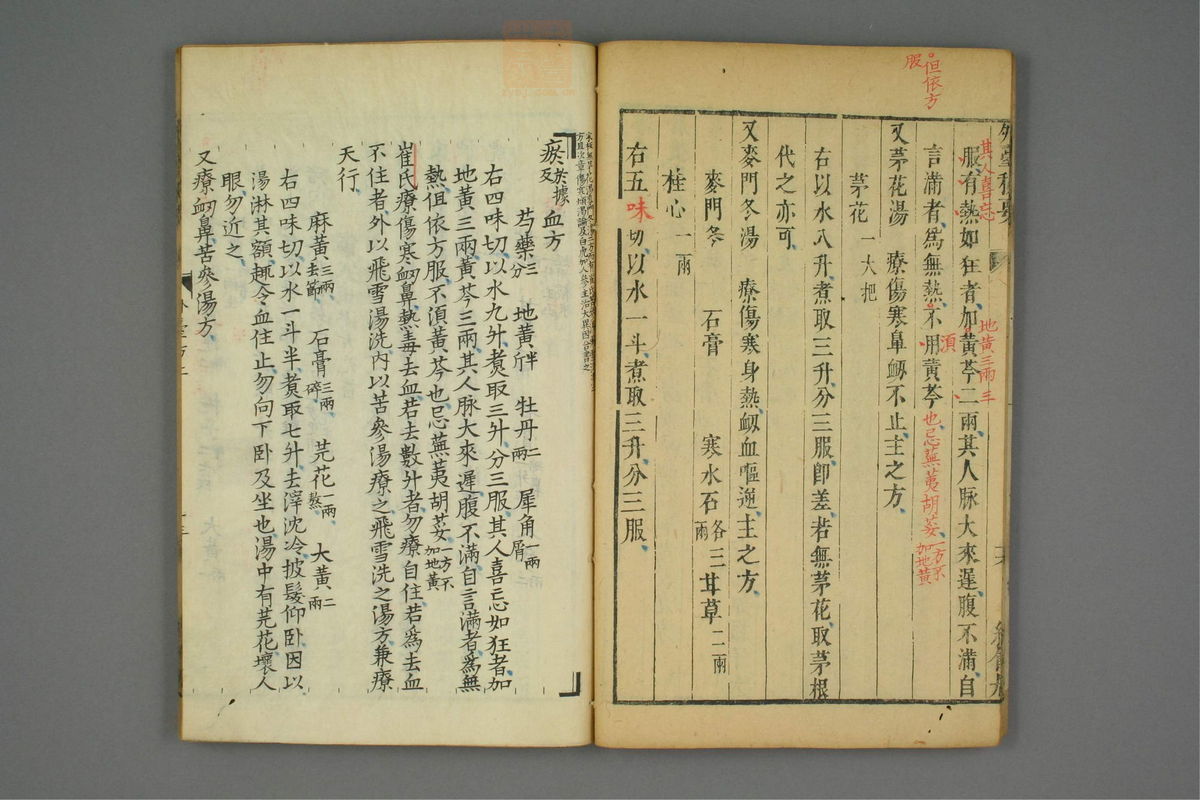 但依方
服
外臺秘要
其人喜忘
服、有熱如狂者、加黃芩二兩、其人脉大來遲、腹不滿、自
地黃三兩 三
言滿者、爲無熱、不用黃芩、也、忌蕪荑胡荽、一方不加地黃
須
又茅花湯 療傷寒鼻衂不止、主之方、
茅花一大把
右以水八升、煮取三升、分三服、卽差、若無茅花、取茅根
代之亦可
又麥門冬湯 療傷寒身熱、衂血嘔逆、主之方、
麥門冬 石膏 寒水石各三兩 甘草二兩
桂心一兩
右五味切、以水一斗、煮取三升分三服、
瘀及 血方
芍藥三分 地黃半斤 牡丹二兩 犀角一兩屑
右四味切、以水九升、煑取三升、分三服、其人喜忘如狂者、加
地黃三兩、黃芩三兩、其人脉大來遲、腹不滿、自言滿者、爲無
熱、但依方服、不須黃芩也、忌蕪荑胡荽、一方不加地黃
崔氏療傷寒衂鼻、熱毒去血、若去數升者、勿療自住、若爲去血
不住者、外以飛雪湯洗、內以苦參湯療之、飛雪洗之湯方、兼療
天行、
麻黃三兩去節 石膏三兩碎 芫花一兩熬 大黃二兩
右四味切、以水一斗半、煑取七升、去滓、沈冷、披髮仰卧、因以
湯淋其額、趣令血住、止、勿向下卧及坐也、湯中有芫花、壞人
眼、勿近之、
又療衂鼻、苦參湯方、